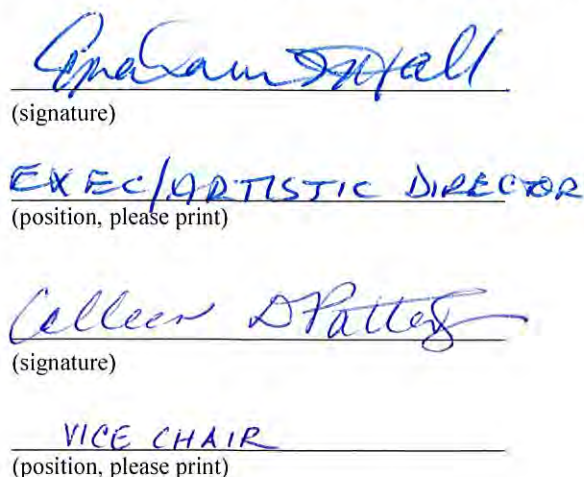 (signature)
EXEC/ARTISTIC DIRECTOR
(position, please print)
Colleen D
(signature)
VICE CHAIR
(position, please print)